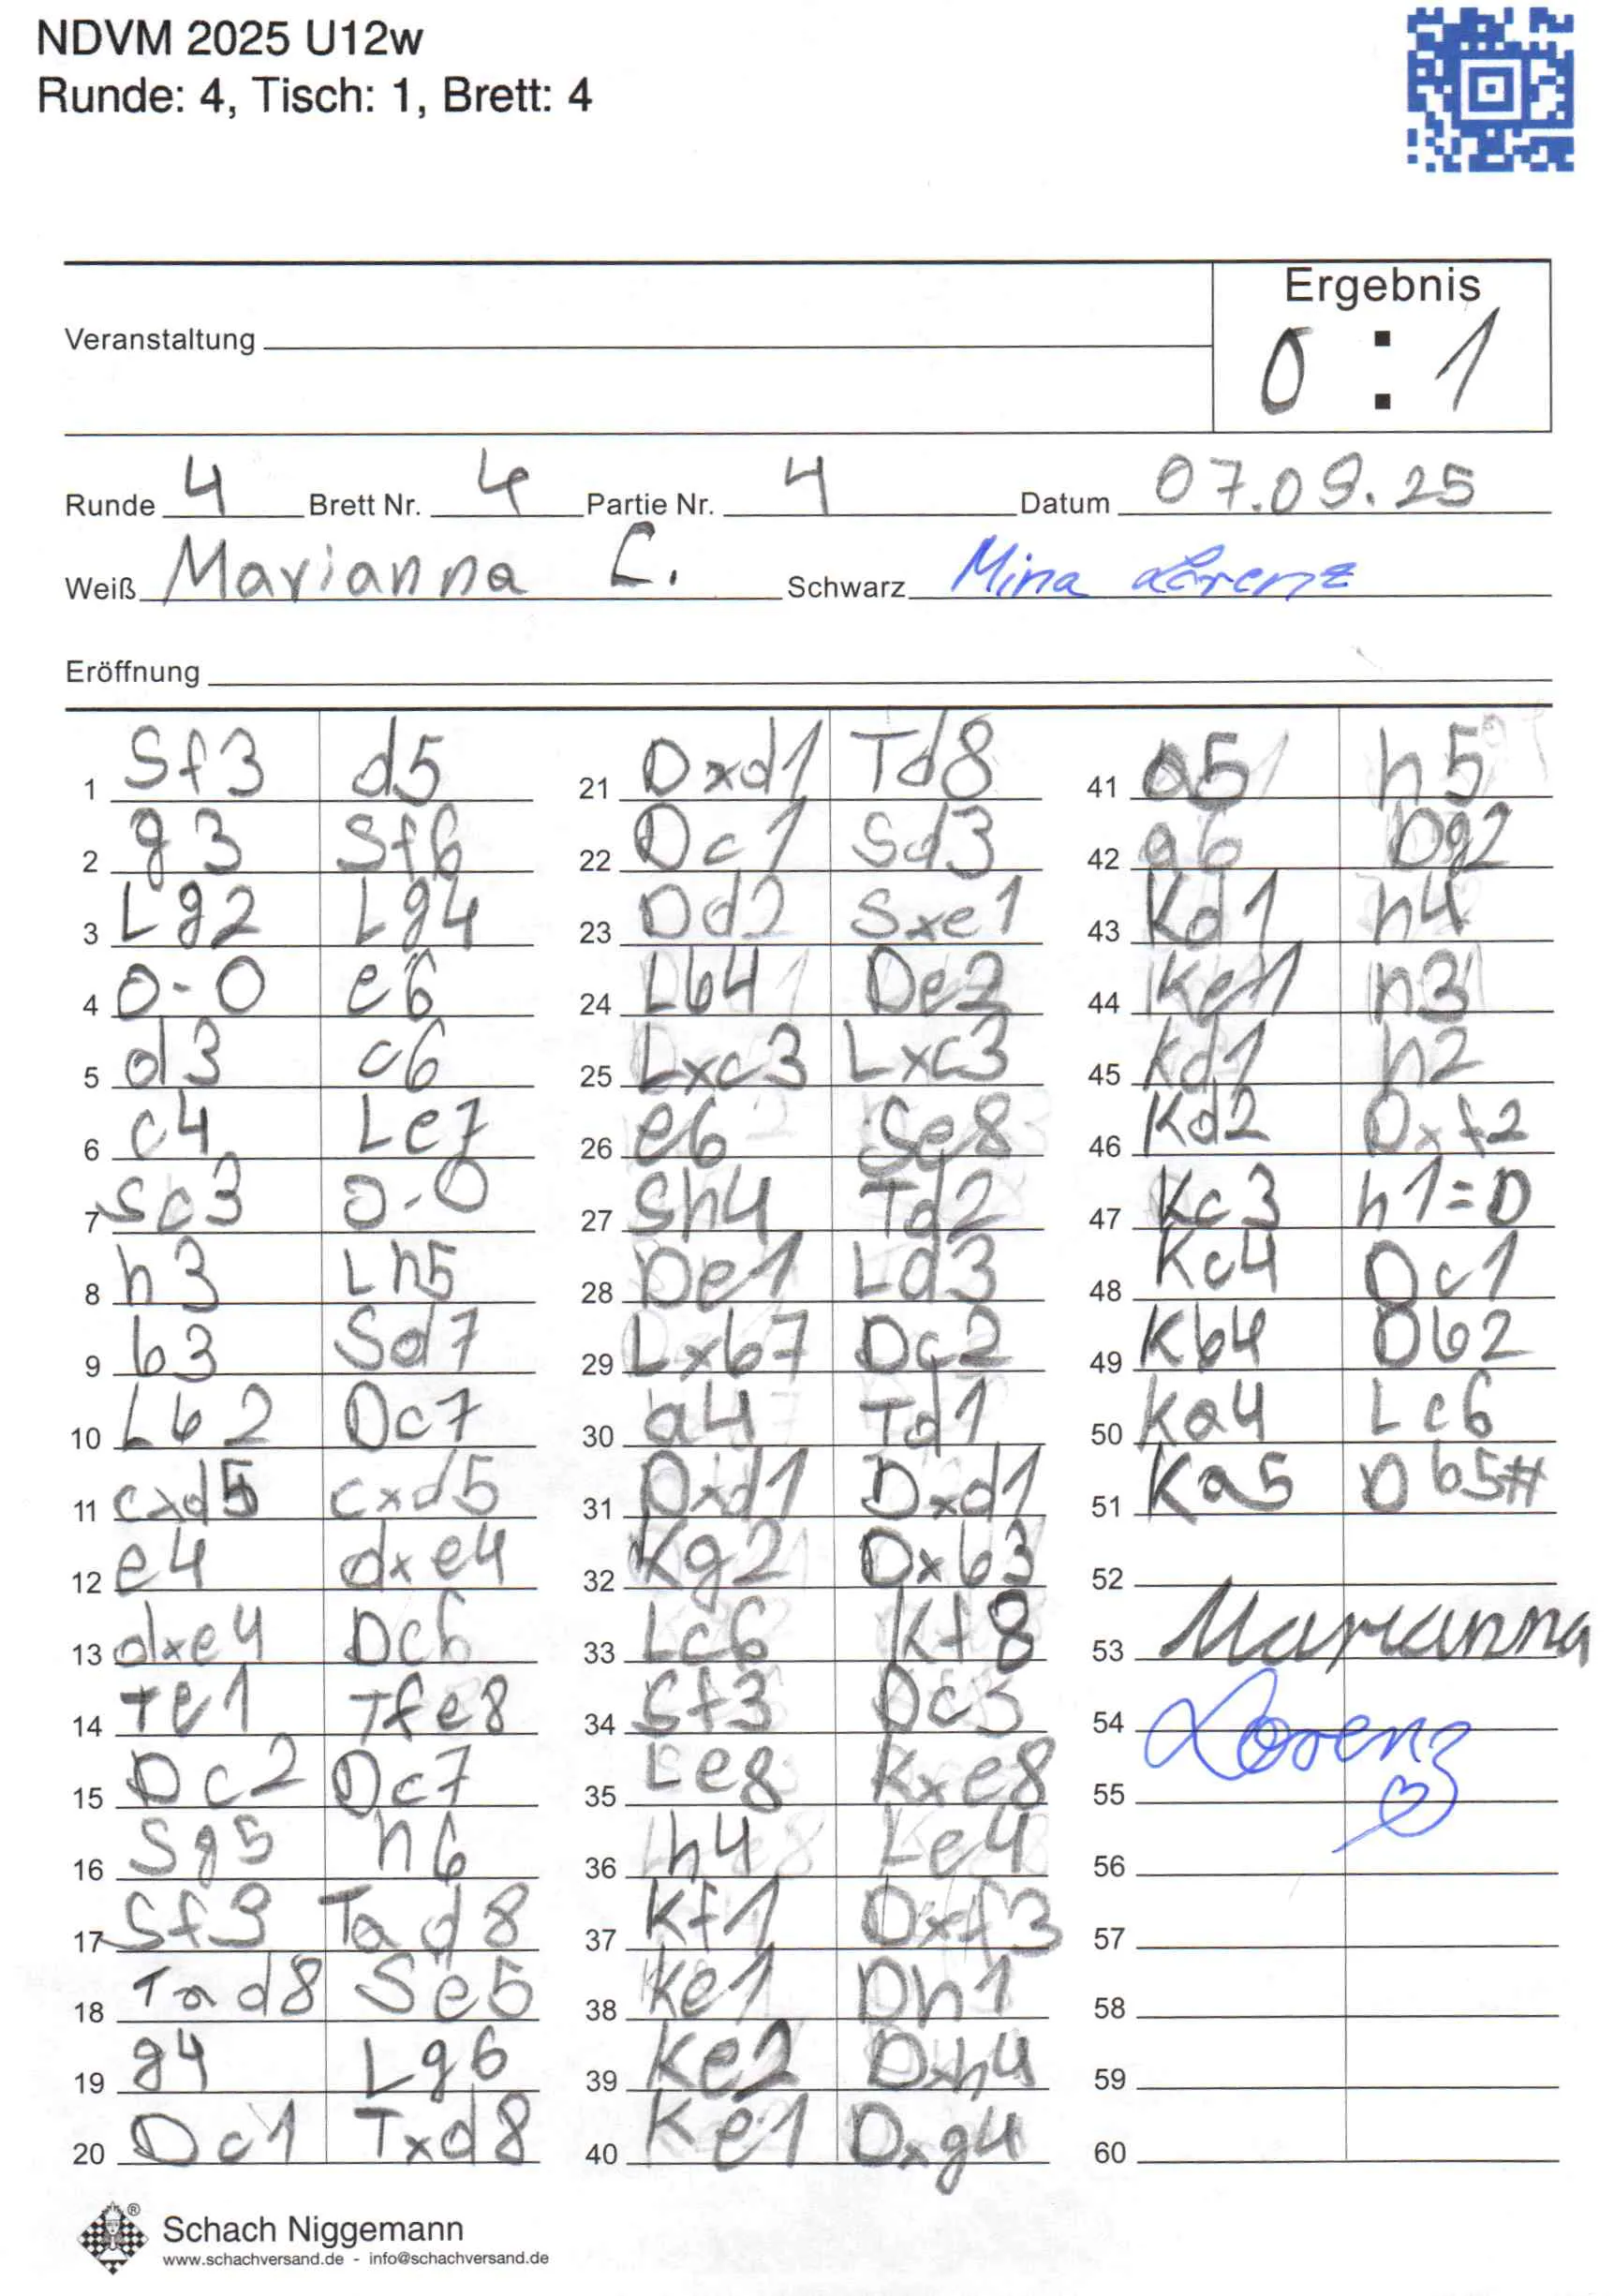 NDVM 2025 U12w
Runde: 4, Tisch: 1, Brett: 4
Ergebnis
Veranstaltung
0 : 1
Runde 4 Brett Nr. 4 Partie Nr. 4 Datum 07.09.25
Weiß Marianna C. Schwarz Mina Lorenz
Eröffnung
1 Sf3 d5
2 g3 Sf6
3 Lg2 Lg4
4 0-0 e6
5 d3 c6
6 c4 Le7
7 Sc3 0-0
8 h3 Lh5
9 b3 Sd7
10 Lb2 Dc7
11 cxd5 cxd5
12 e4 dxe4
13 dxe4 Dc6
14 Te1 Tfe8
15 Dc2 Dc7
16 Sg5 h6
17 Sf3 Tad8
18 Tad8 Se5
19 g4 Lg6
20 Dc1 Txd8
21 Dxd1 Td8
22 Dc1 Sd3
23 Dd2 Sxe1
24 Lb4 De2
25 Lxc3 Lxc3
26 e6 Se8
27 Sh4 Td2
28 De1 Ld3
29 Lxb7 Dc2
30 a4 Td1
31 Dxd1 Dxd1
32 Kg2 Dxb3
33 Lc6 Kf8
34 Sf3 Dc3
35 Le8 Kxe8
36 h4 Le4
37 Kf1 Dxf3
38 Ke1 Dh1
39 Ke2 Dxh4
40 Ke1 Dxg4
41 a5 h5
42 a6 Dg2
43 Kd1 h4
44 Ke1 h3
45 Kd1 h2
46 Kd2 Dxf2
47 Kc3 h1=D
48 Kc4 Dc1
49 Kb4 Db2
50 Ka4 Lc6
51 Ka5 Db5#
52
53 Marianna
54 Lorenz
55
56
57
58
59
60
®
Schach Niggemann
www.schachversand.de - info@schachversand.de